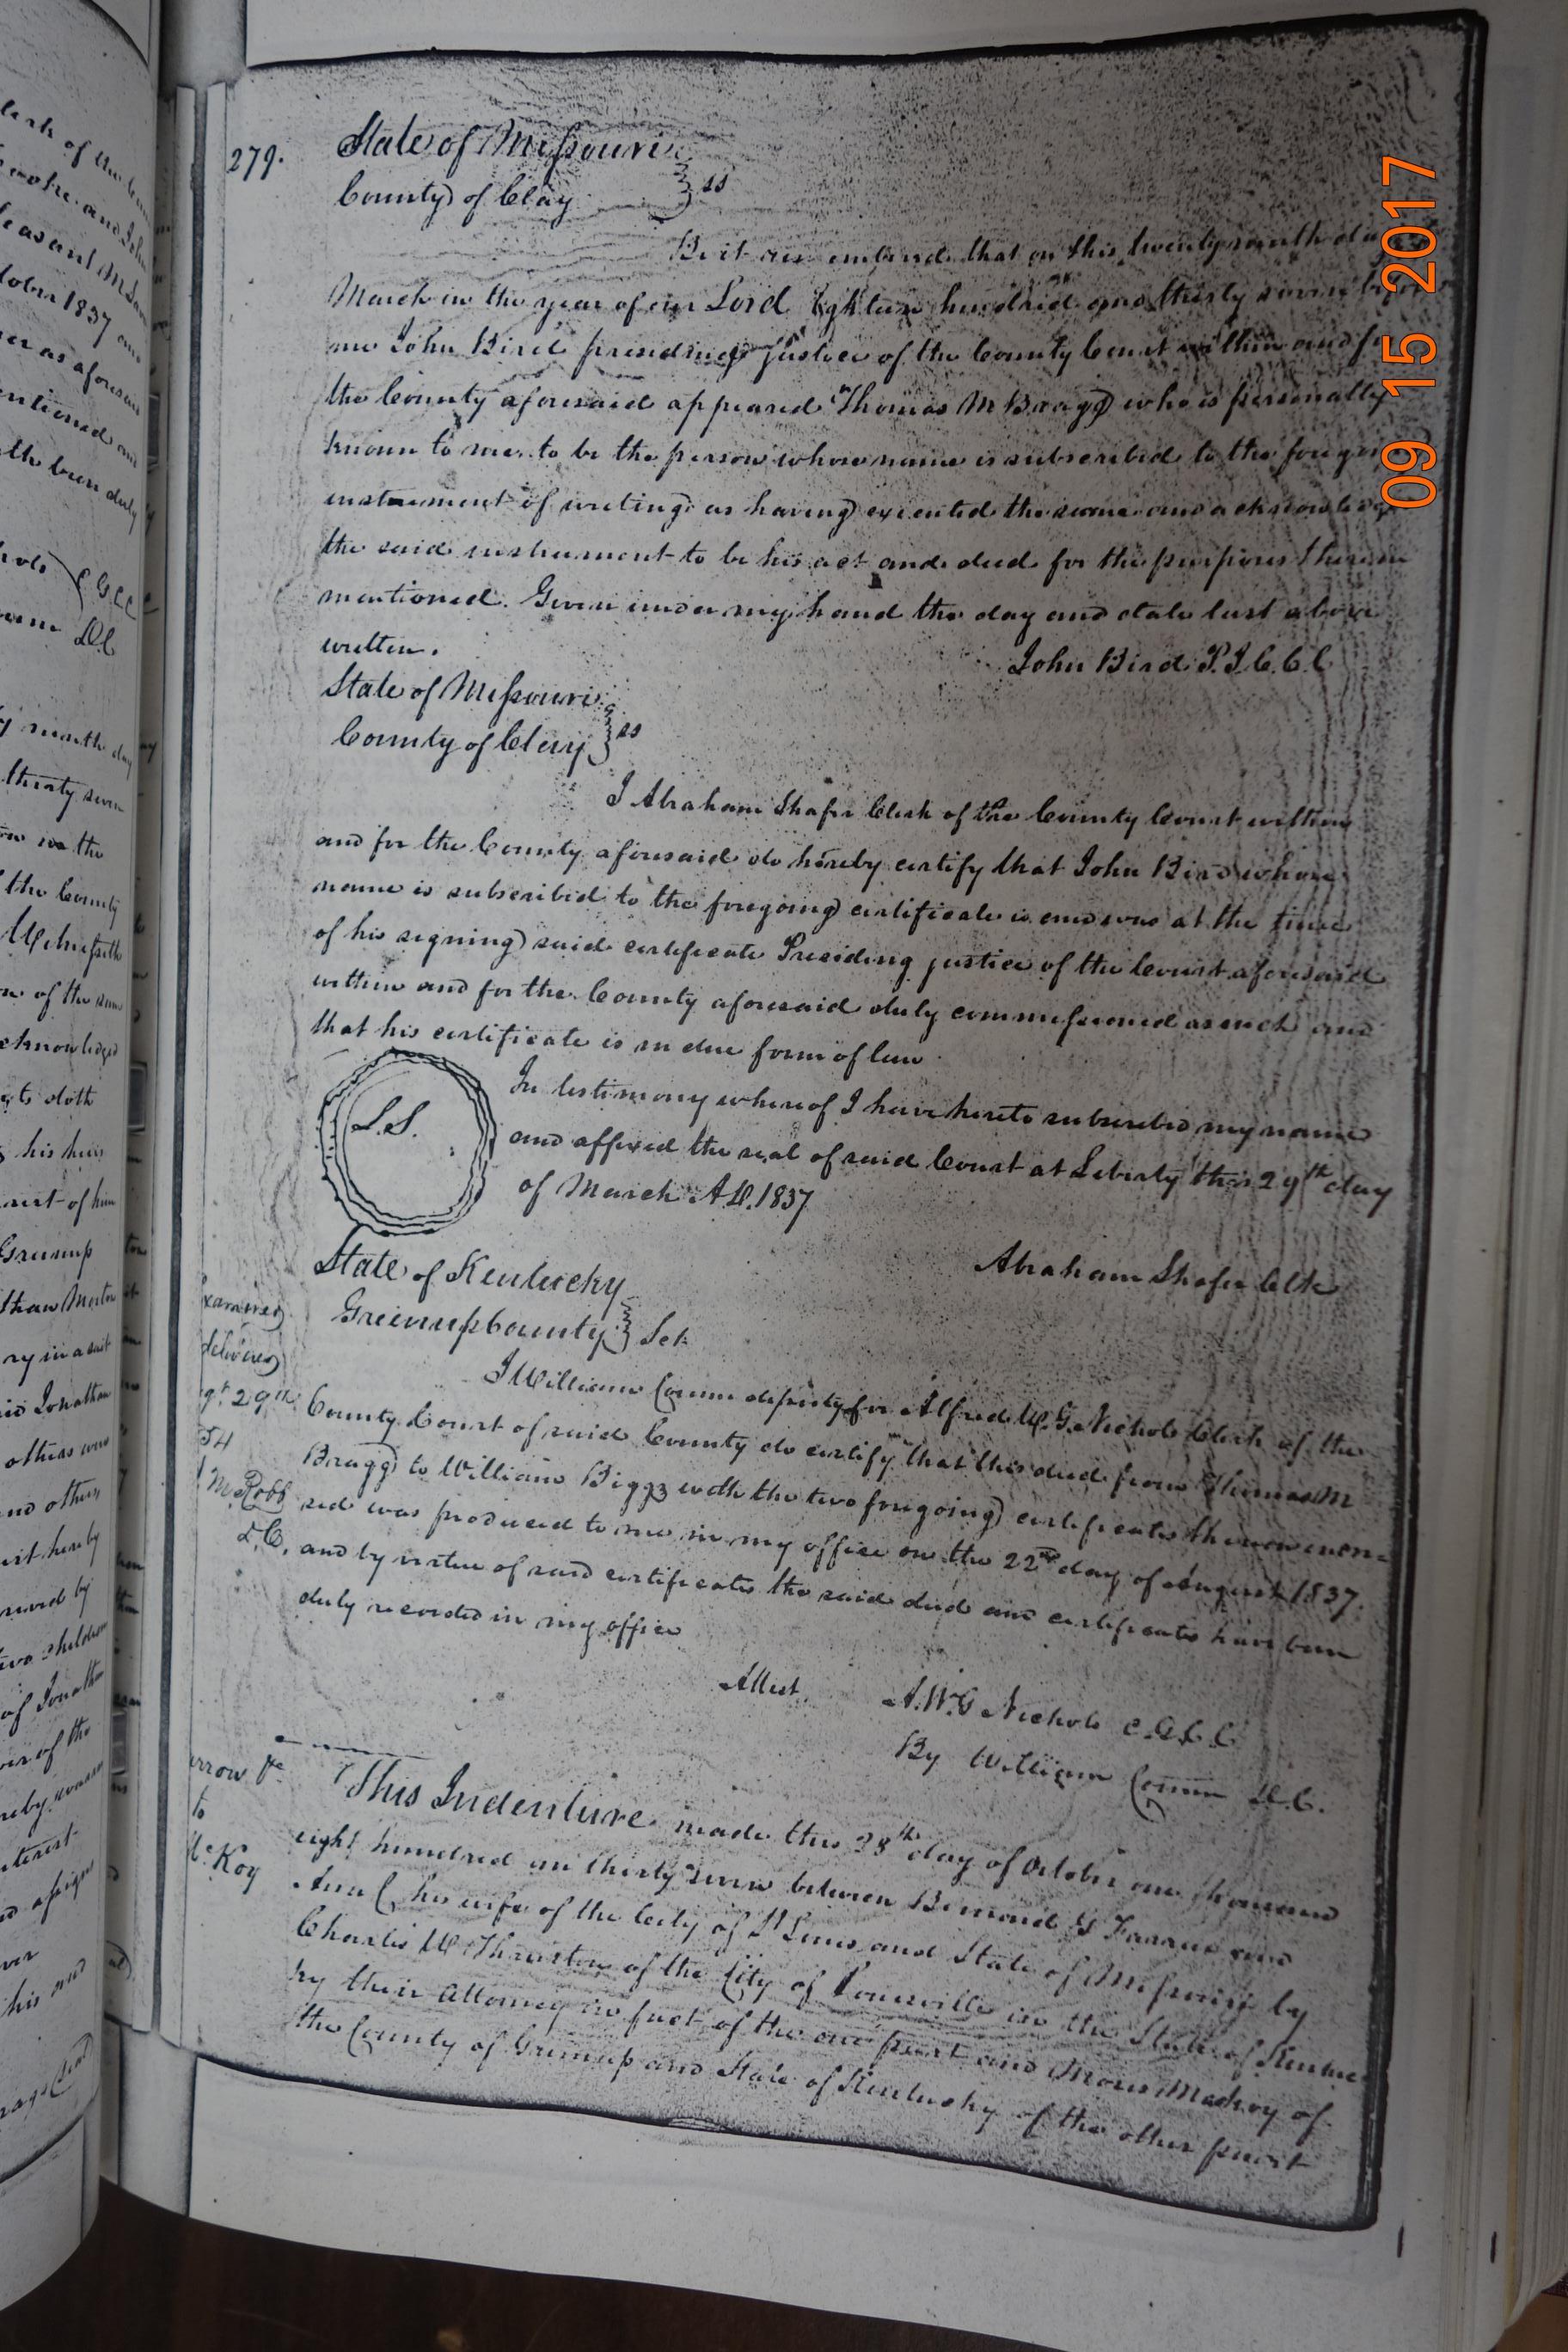 279.
State of Missouri
County of Clay } ss
Be it remembered that on this twenty ninth day
March in the year of our Lord Eighteen hundred and thirty seven before
me John Bird presiding justice of the County Court within and for
the County aforesaid appeared Thomas M Bragg who is personally
known to me to be the person whose name is subscribed to the foregoing
instrument of writing as having executed the same and acknowledged
the said instrument to be his act and deed for the purposes therein
mentioned. Given under my hand the day and date last above
written.
John Bird P.J.C.C.C
State of Missouri
County of Clay } ss
I Abraham Shafer Clerk of the County Court within
and for the County aforesaid do hereby certify that John Bird whose
name is subscribed to the foregoing certificate is and was at the time
of his signing said certificate Presiding justice of the Court aforesaid
within and for the County aforesaid duly commissioned as such and
that his certificate is in due form of law
L.S.
In testimony whereof I have hereto subscribed my name
and affixed the seal of said Court at Liberty this 29th day
of March A.D. 1837
Abraham Shafer Clk
State of Kentucky
Greenup County } Sct
Examined
delivered
29th
54
M. Robb
D.C.
I William Corum deputy for Alfred W. G. Nichols Clerk of the
County Court of said County do certify that this deed from Thomas M
Bragg to William Biggs with the two foregoing certificates thereon endor=
sed was produced to me in my office on the 22nd day of August 1837.
and by virtue of said certificates the said deed and certificates have been
duly recorded in my office
Attest. A.W.G Nichols C.G.C.C
By William Corum D.C.
to
McKoy
This Indenture made this 28th day of October one thousand
eight hundred an thirty seven between Bernard G Farrar and
Ann C his wife of the City of St Louis and State of Missouri by
Charles W Thruston of the City of Louisville in the State of Kentuc
ky their Attorney in fact of the one part and Moses Mackoy of
the County of Greenup and State of Kentucky of the other part
09 15 2017